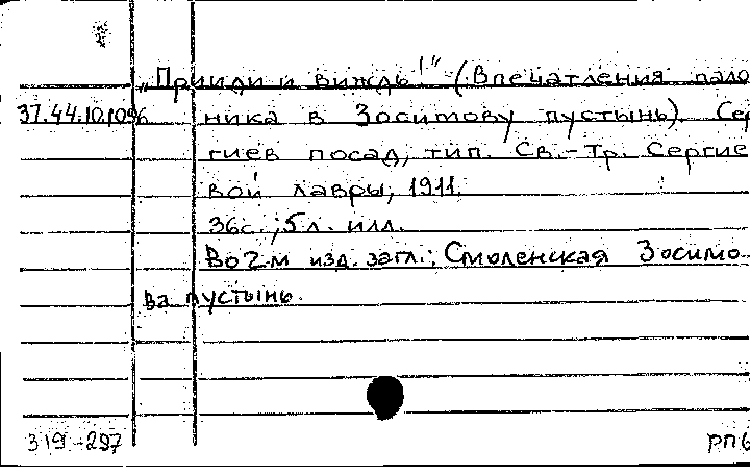 „Прииди и виждь!" (Впечатления пало
37.44.10.1096 ника в Зосимову пустынь). Сер
гиев посад, тип. Св.-Тр. Сергие
вой лавры, 1911.
36с.; 5л. илл.
Во 2-м изд. загл.: Смоленская Зосимо
ва пустынь.
319-297 РП6